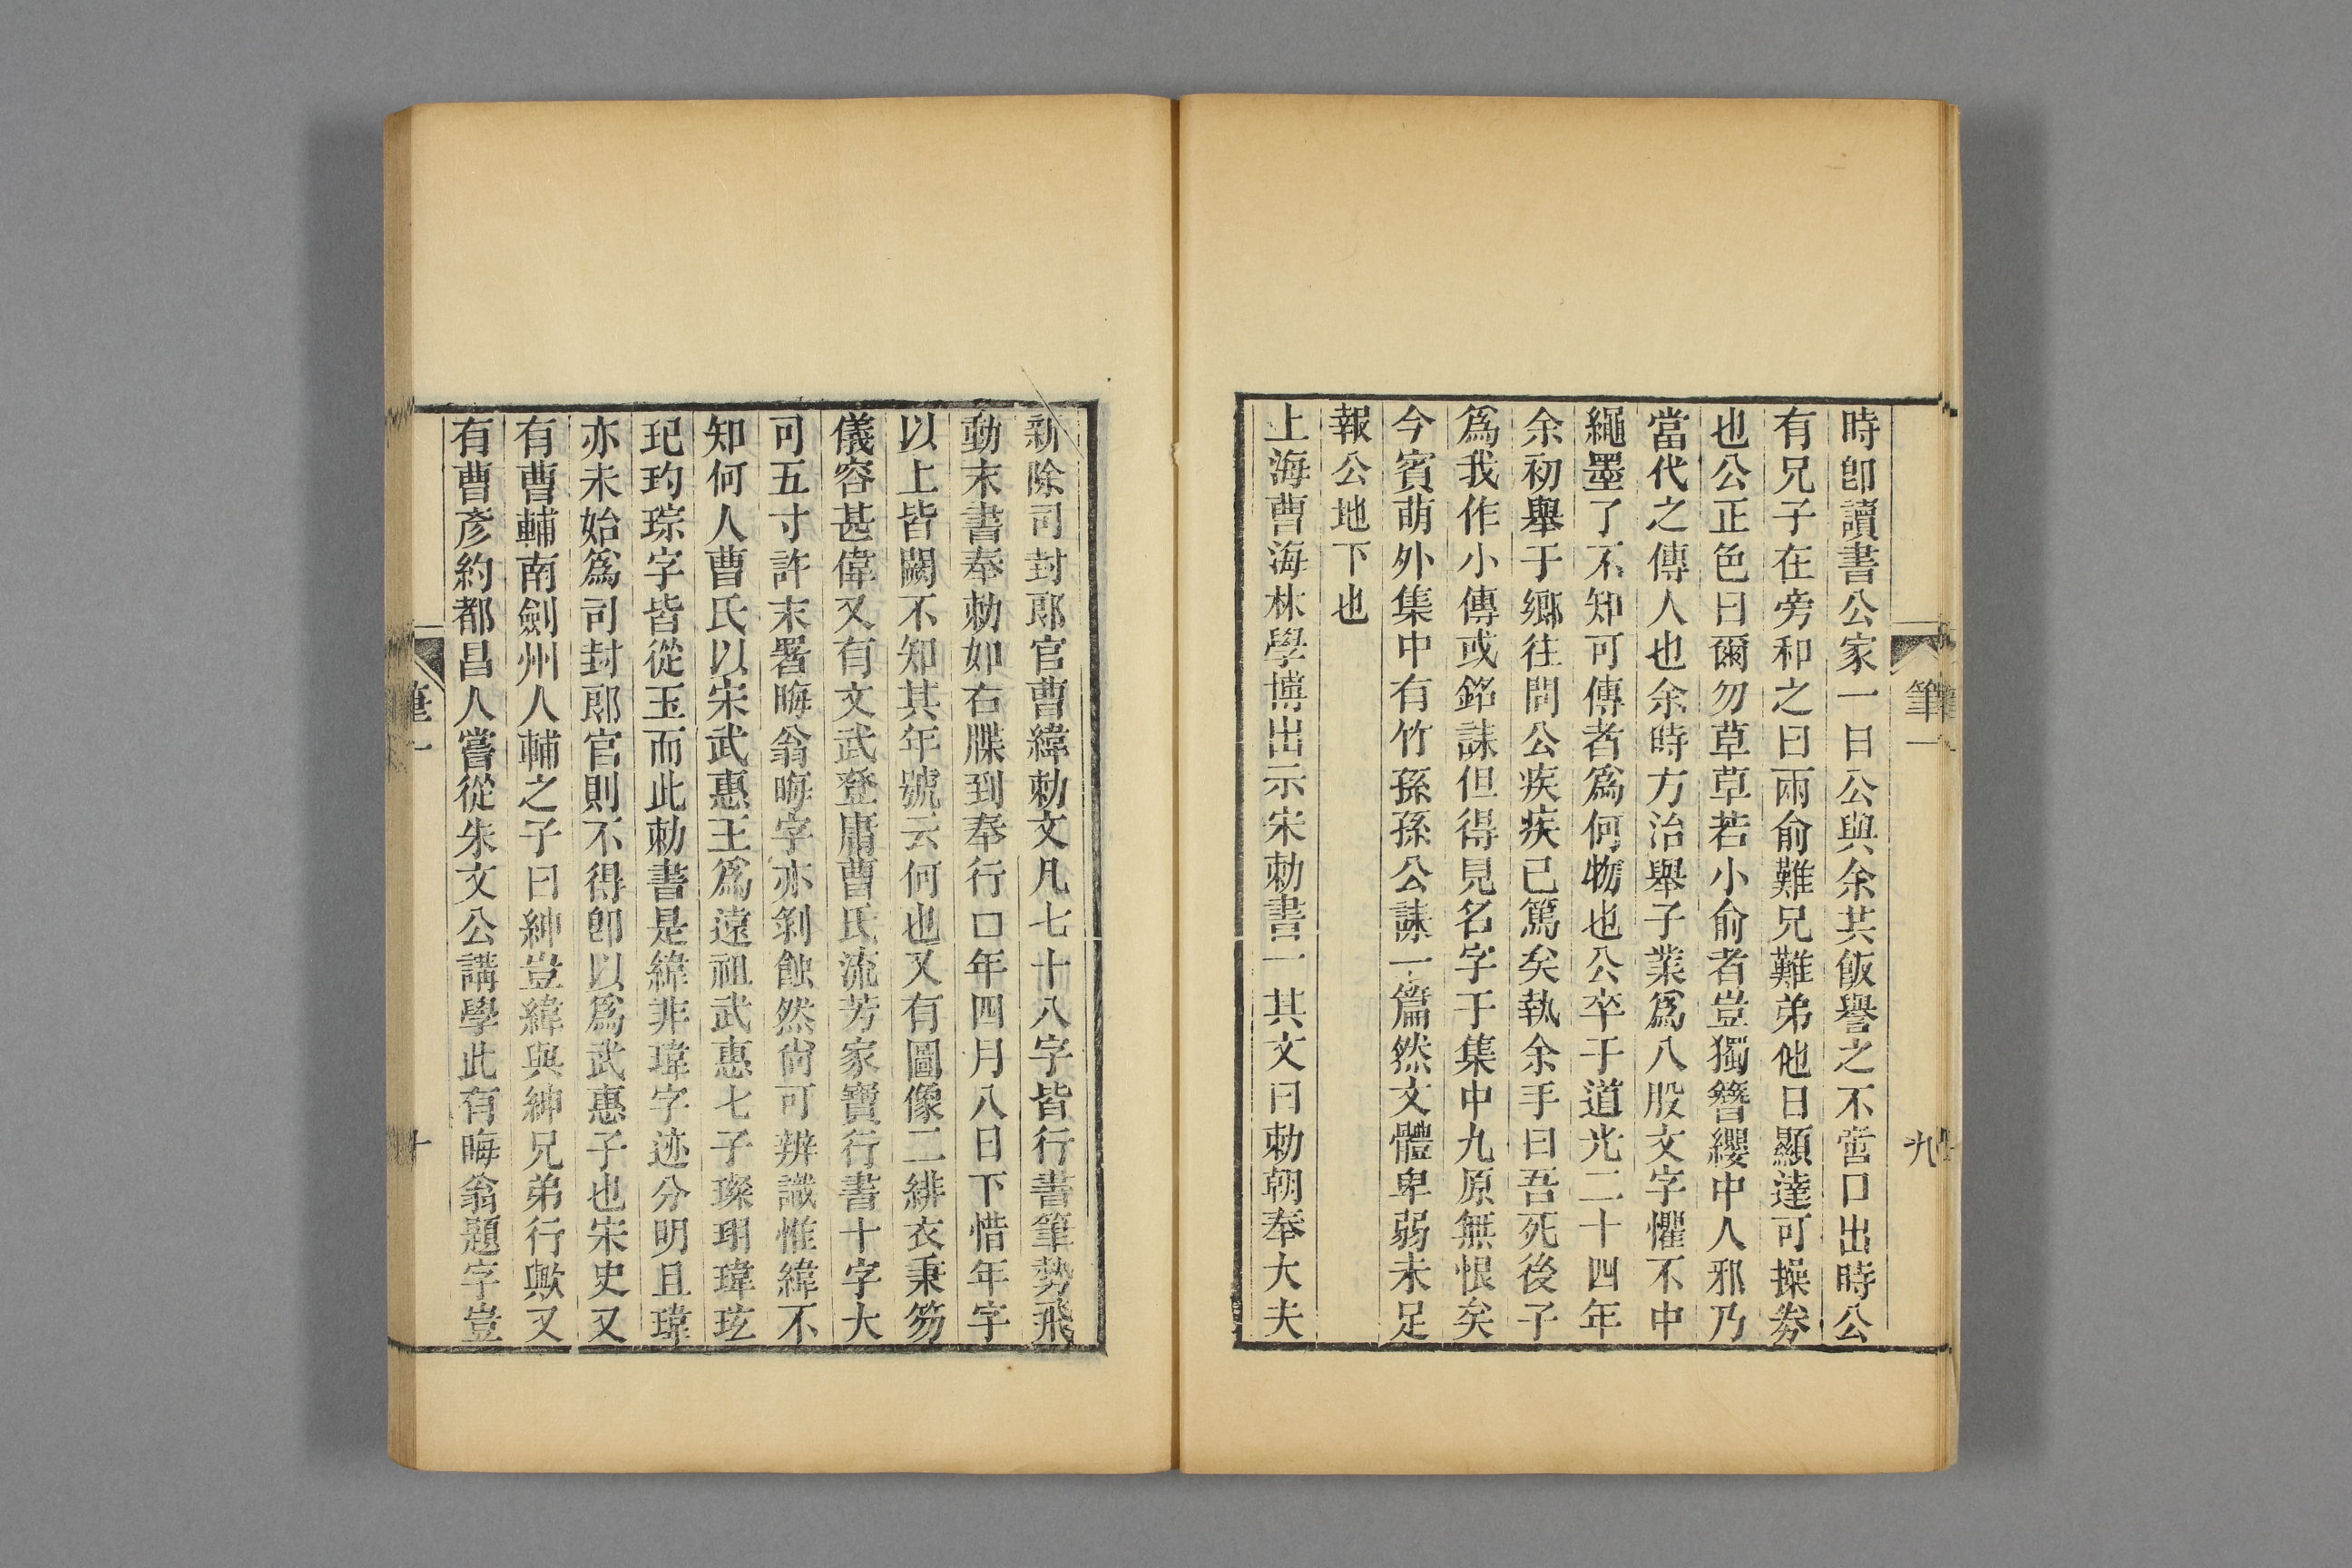 時卽讀書公家一日公與余共飯譽之不啻口出時公
有兄子在旁和之曰兩俞難兄難弟他日顯達可操券
也公正色曰爾勿草草若小俞者豈獨簪纓中人邪乃
當代之傳人也余時方治舉子業爲八股文字懼不中
繩墨了不知可傳者爲何物也公卒于道光二十四年
余初舉于鄉往問公疾疾已篤矣執余手曰吾死後子
爲我作小傳或銘誄但得見名字于集中九原無恨矣
今賓萌外集中有竹孫孫公誄一篇然文體卑弱未足
報公地下也
上海曹海林學博出示宋勅書一其文曰勅朝奉大夫
筆一
九
新除司封郎官曹緯勅文凡七十八字皆行書筆勢飛
動末書奉勅如右牒到奉行口年四月八日下惜年字
以上皆闕不知其年號云何也又有圖像二緋衣秉笏
儀容甚偉又有文武登庸曹氏流芳家寶行書十字大
可五寸許末署晦翁晦字亦剝蝕然尙可辨識惟緯不
知何人曹氏以宋武惠王爲遠祖武惠七子璨珝瑋玹
玘玓琮字皆從玉而此勅書是緯非瑋字迹分明且瑋
亦未始爲司封郎官則不得卽以爲武惠子也宋史又
有曹輔南劍州人輔之子曰紳豈緯與紳兄弟行歟又
有曹彥約都昌人嘗從朱文公講學此有晦翁題字豈
筆一
十